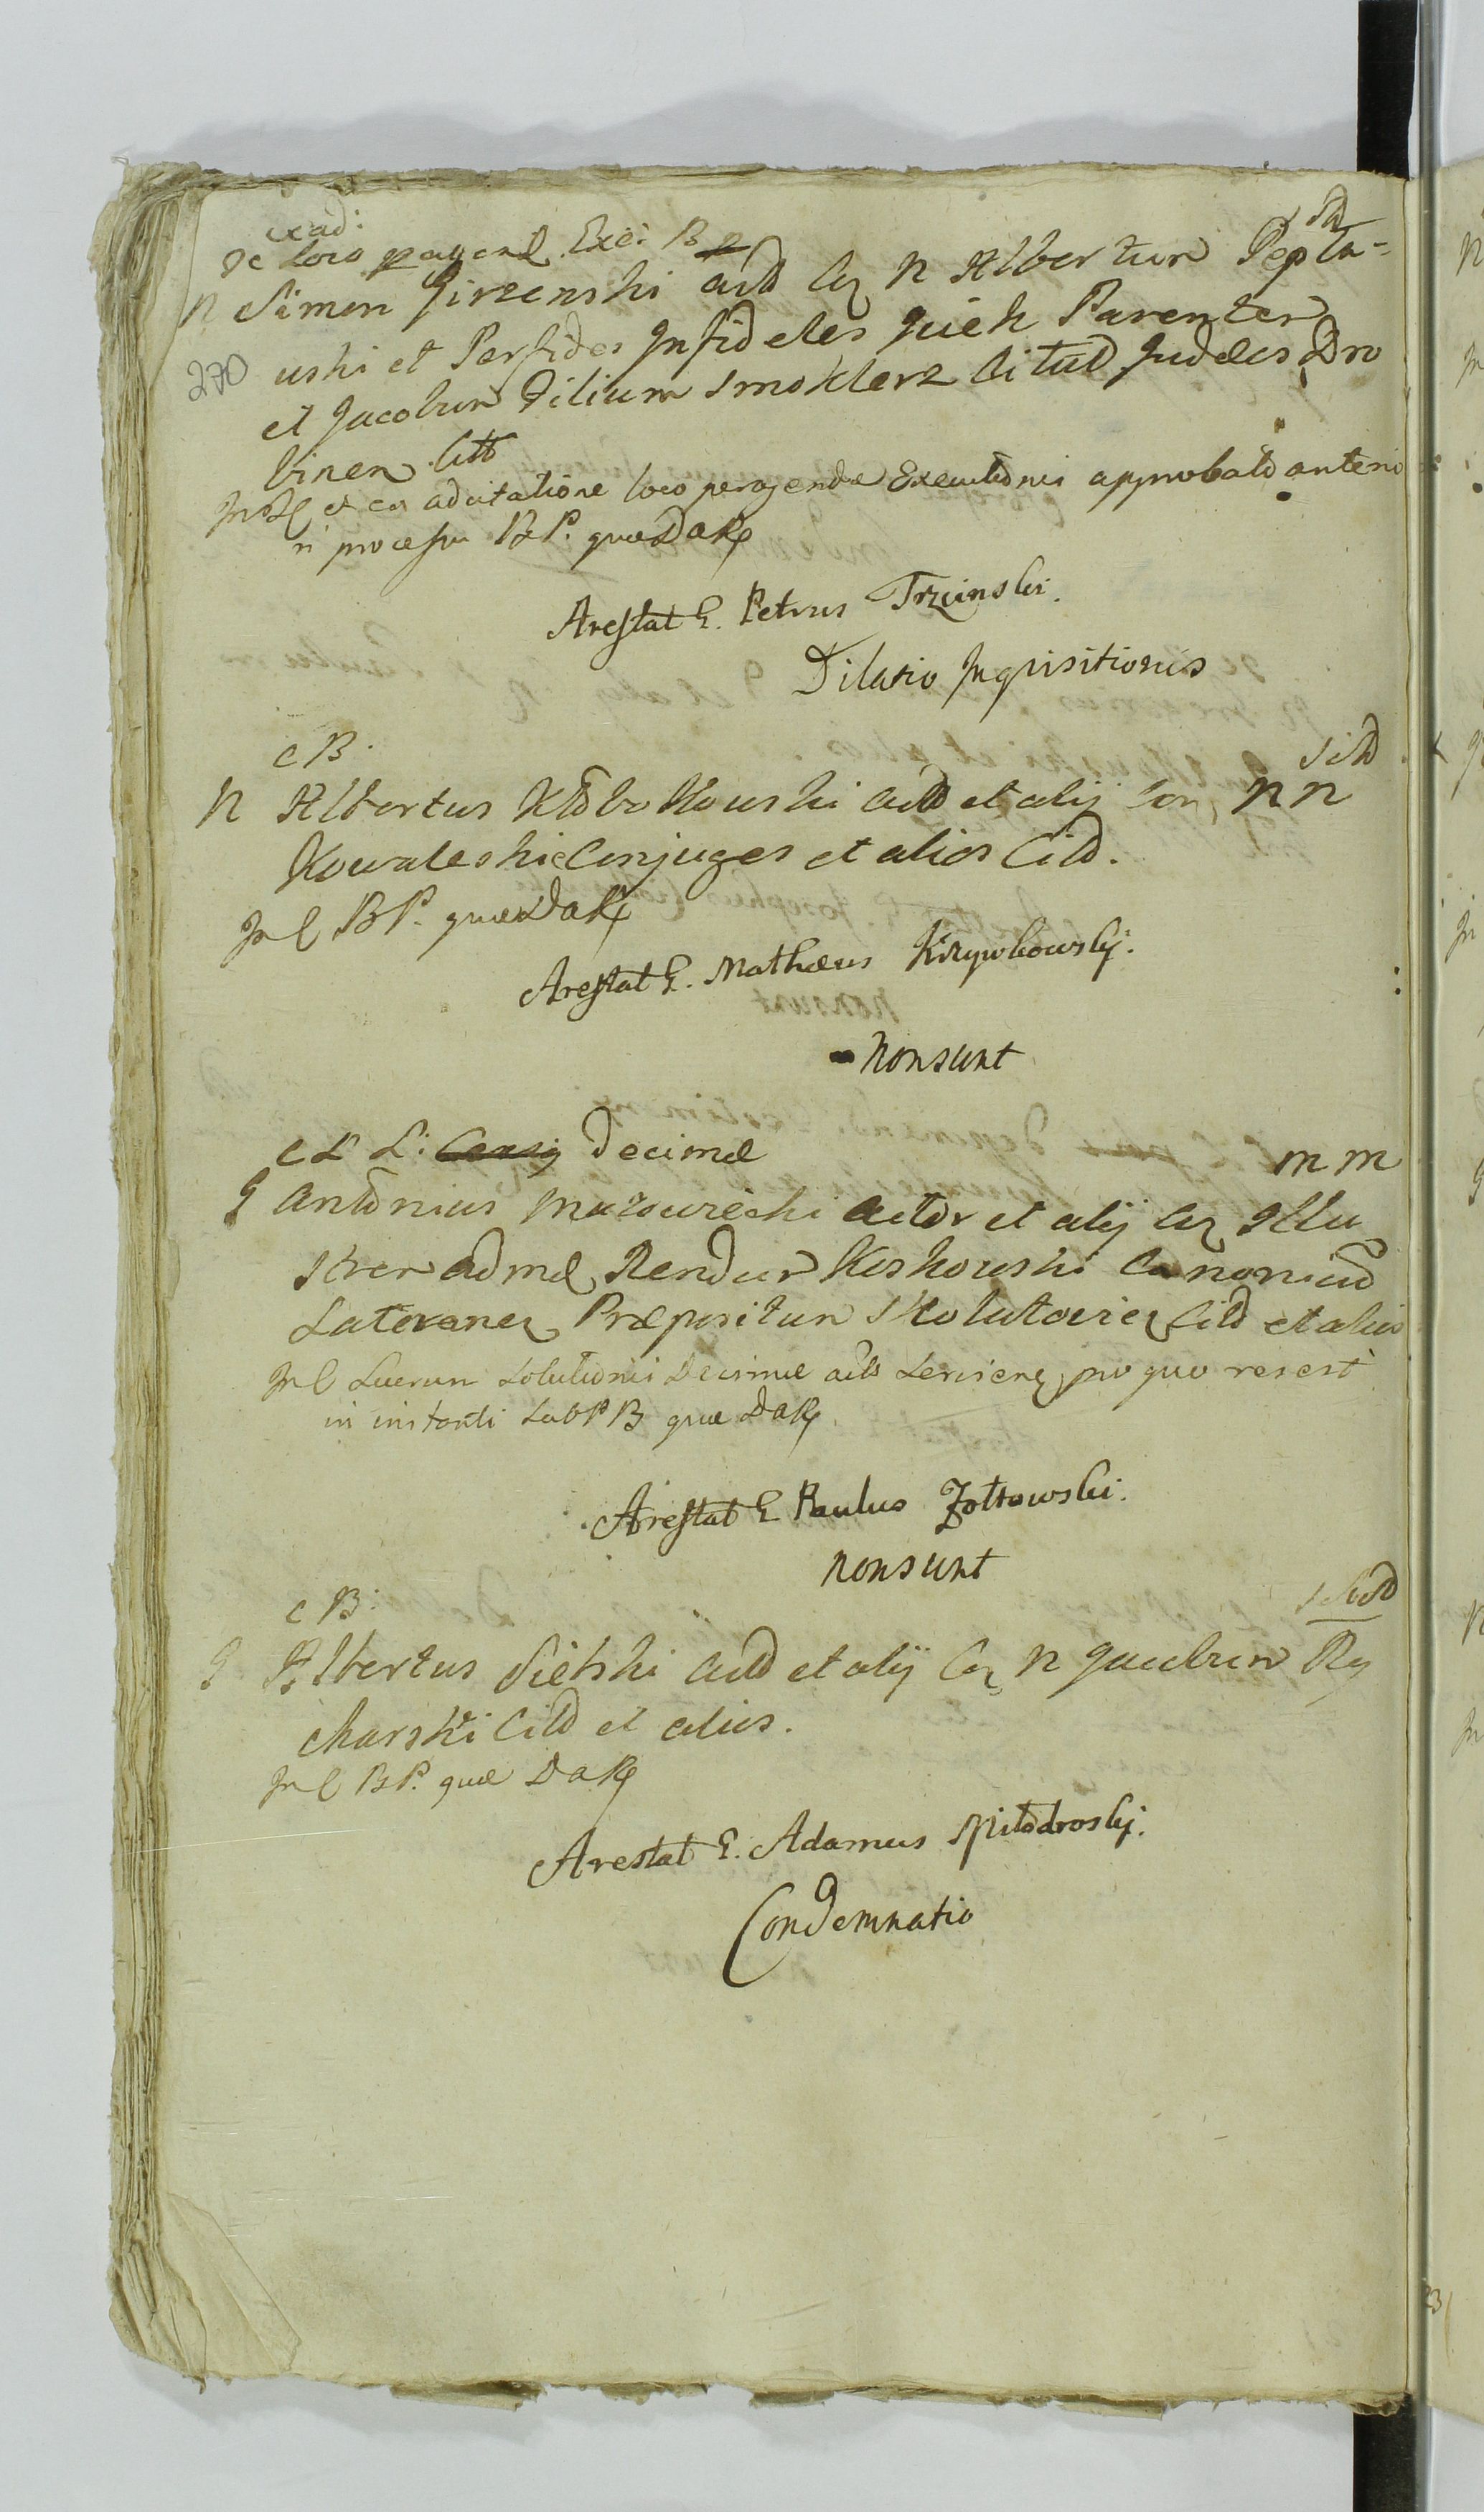 ex ad:
de loco peragend. Exec: B
N Simon Girzenski actd Cz N Albertum Pepła=
270 uski et Perfidos Infideles Juch Parentem
et Jacobum Filium Smoklerz Citud Judæos Dro
binen. Citt
et ex adcitatione loco peragendæ Executionis approbato anterio
ri processu BP. quædaRz
Arestat G. Petrus Trzcinski.
Dilatio Inquisitionis
c B.
N Albertus Kłobukowski actd et alij Con N N
Kowaleskie Conjuges et alios Citd.
In C BP. quædaRz
Arestat G. Mathæus Krzywkowskij.
Nonsunt
Decimæ
m m
G Antonius Mazowiecki Actor et alij Cz Illu
strem admd Rendum Koskowski Canonicum
Lateranen Præpositum citd et alios
In C Luerum Solutionis Decimæ pro quo res est
in instanti sub PB quæ DaRz
Arestat G Paulus Zołtowski.
Nonsunt
c B:
G Albertus Sielski actd et alij Cz N Jacobum Ry
charski Citd et alios.
In C BP. quæ DaRz
Arestat G. Adamus
Condemnatio